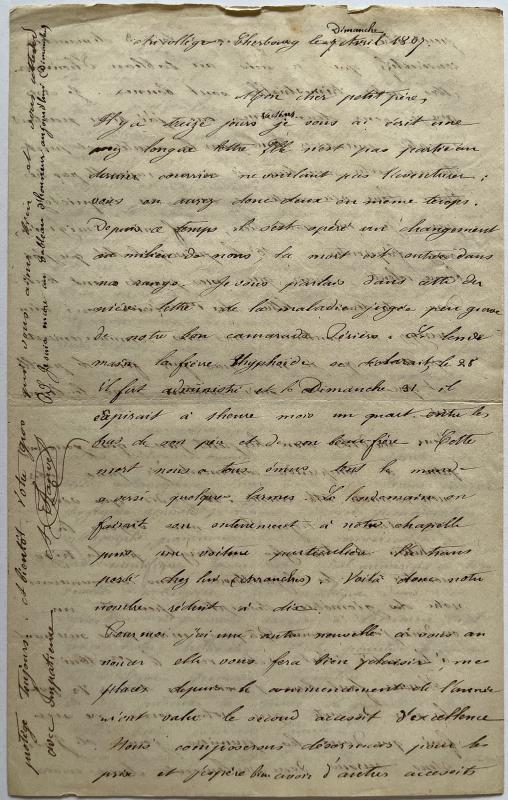 Cherbourg le 7 Avril 1807
Dimanche
Mon cher petit père,
Il y a treize jours je vous ai écrit une
longue lettre n'est pas partie au
dernier courrier ne voulant pas l'aventurer ;
vous en aurez donc deux en même temps.
Depuis ce temps il s'est opéré un changement
au milieu de nous, la mort est entrée dans
nos rangs. Je vous parlais dans cette der
nière lettre de la maladie jugée peu grave
de notre bon camarade . Le lende
main la fièvre thyphoïde se déclarait, le 28
il fut administré et le Dimanche 31 il
expirait à 1 heure moins un quart entre les
bras de son père et de son beau frère. Cette
mort nous a tous émus tout le monde
a versé quelques larmes. Le lendemain on
faisait son enterrement à notre chapelle
puis une voiture particulière le trans
porta chez lui (Avranches). Voilà donc notre
nombre réduit à dix.
Pour moi j'ai une autre nouvelle à vous an
noncer elle vous fera bien plaisir ; mes
places depuis le commencement de l'année
m'ont valu le second accessit d'excellence
Nous composerons désormais pour les
prix et j'espère bien avoir d'autres accessits
protège toujours. A bientôt votre gros qui vous aime bien et vous attend
avec impatience
PS. Je suis mis au tableau d'honneur aujourd'hui (Dimanche)